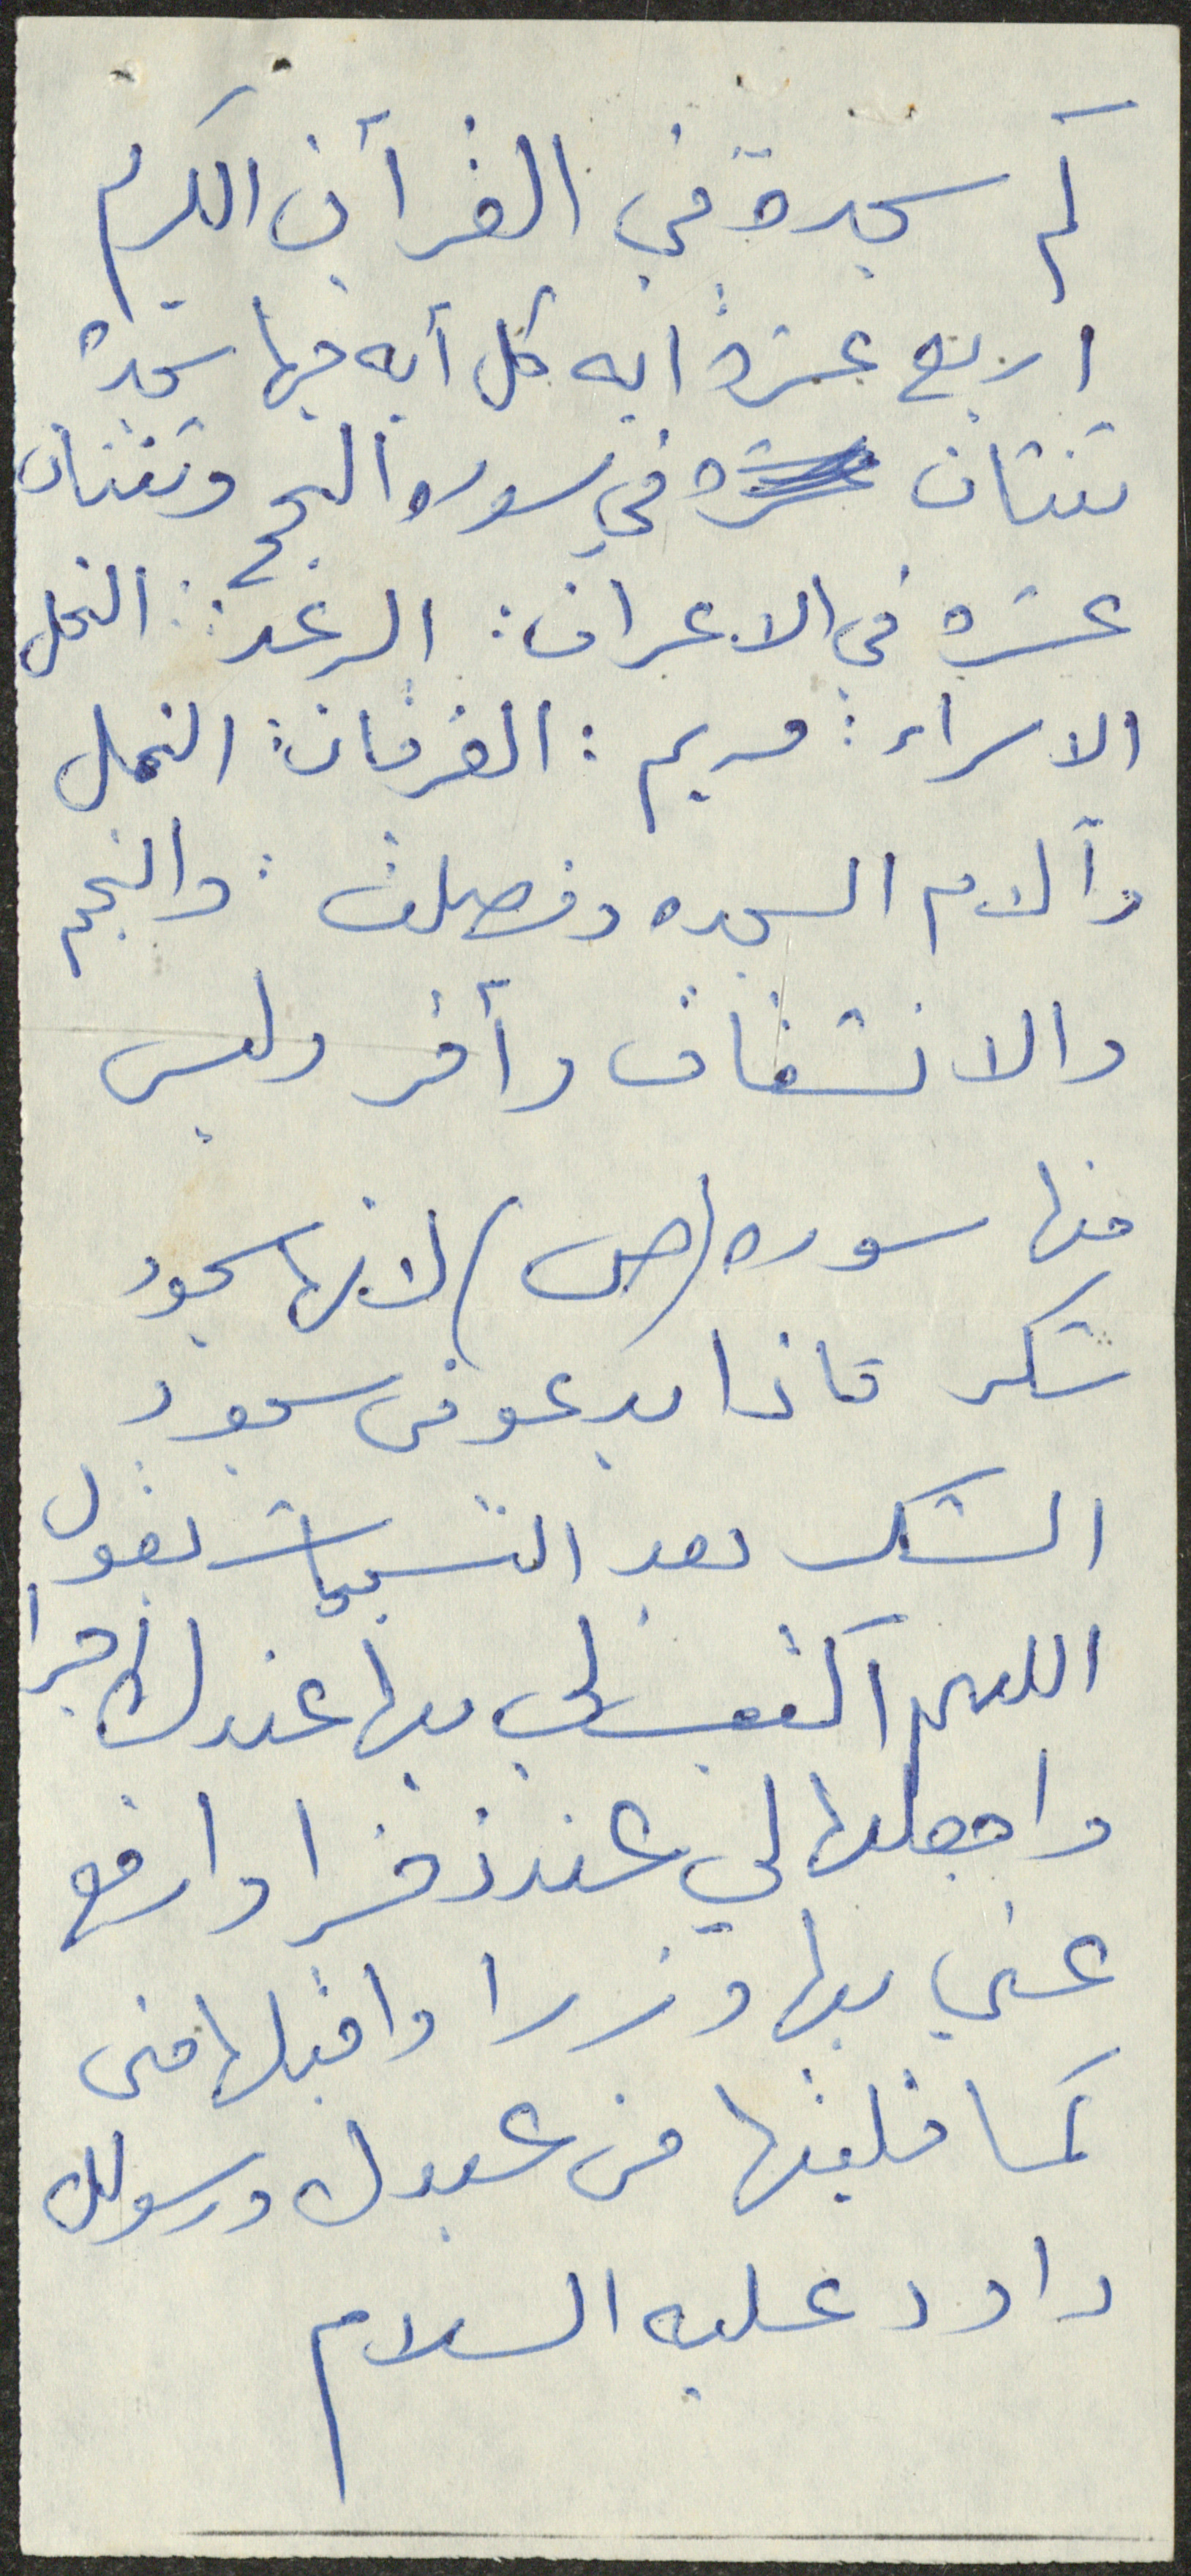 كم سجدة في القرآن الكريم
اربع عشرة ايه كل آيه فيها سجدة
ثنتان في سوره الحج وثنتان
عشره في الاعراف : الرعد : النحل
الاسراء : مريم : الفرقان : النمل
وآلام السجده وفصلت : والنجم
والانشقاق وأقر وليس
منها سوره (ص) لانها سجود
شكر ماذا يدعو في سجود
الشكر بعد التسبيحات يقول
اللهم اكتب لي بها عندك اجرا
واجعلها لي عندك ذخرا وارفع
عني بها وزرا واقبلها منى
كما قبلتها من عبدك ورسولك
داود عليه السلام